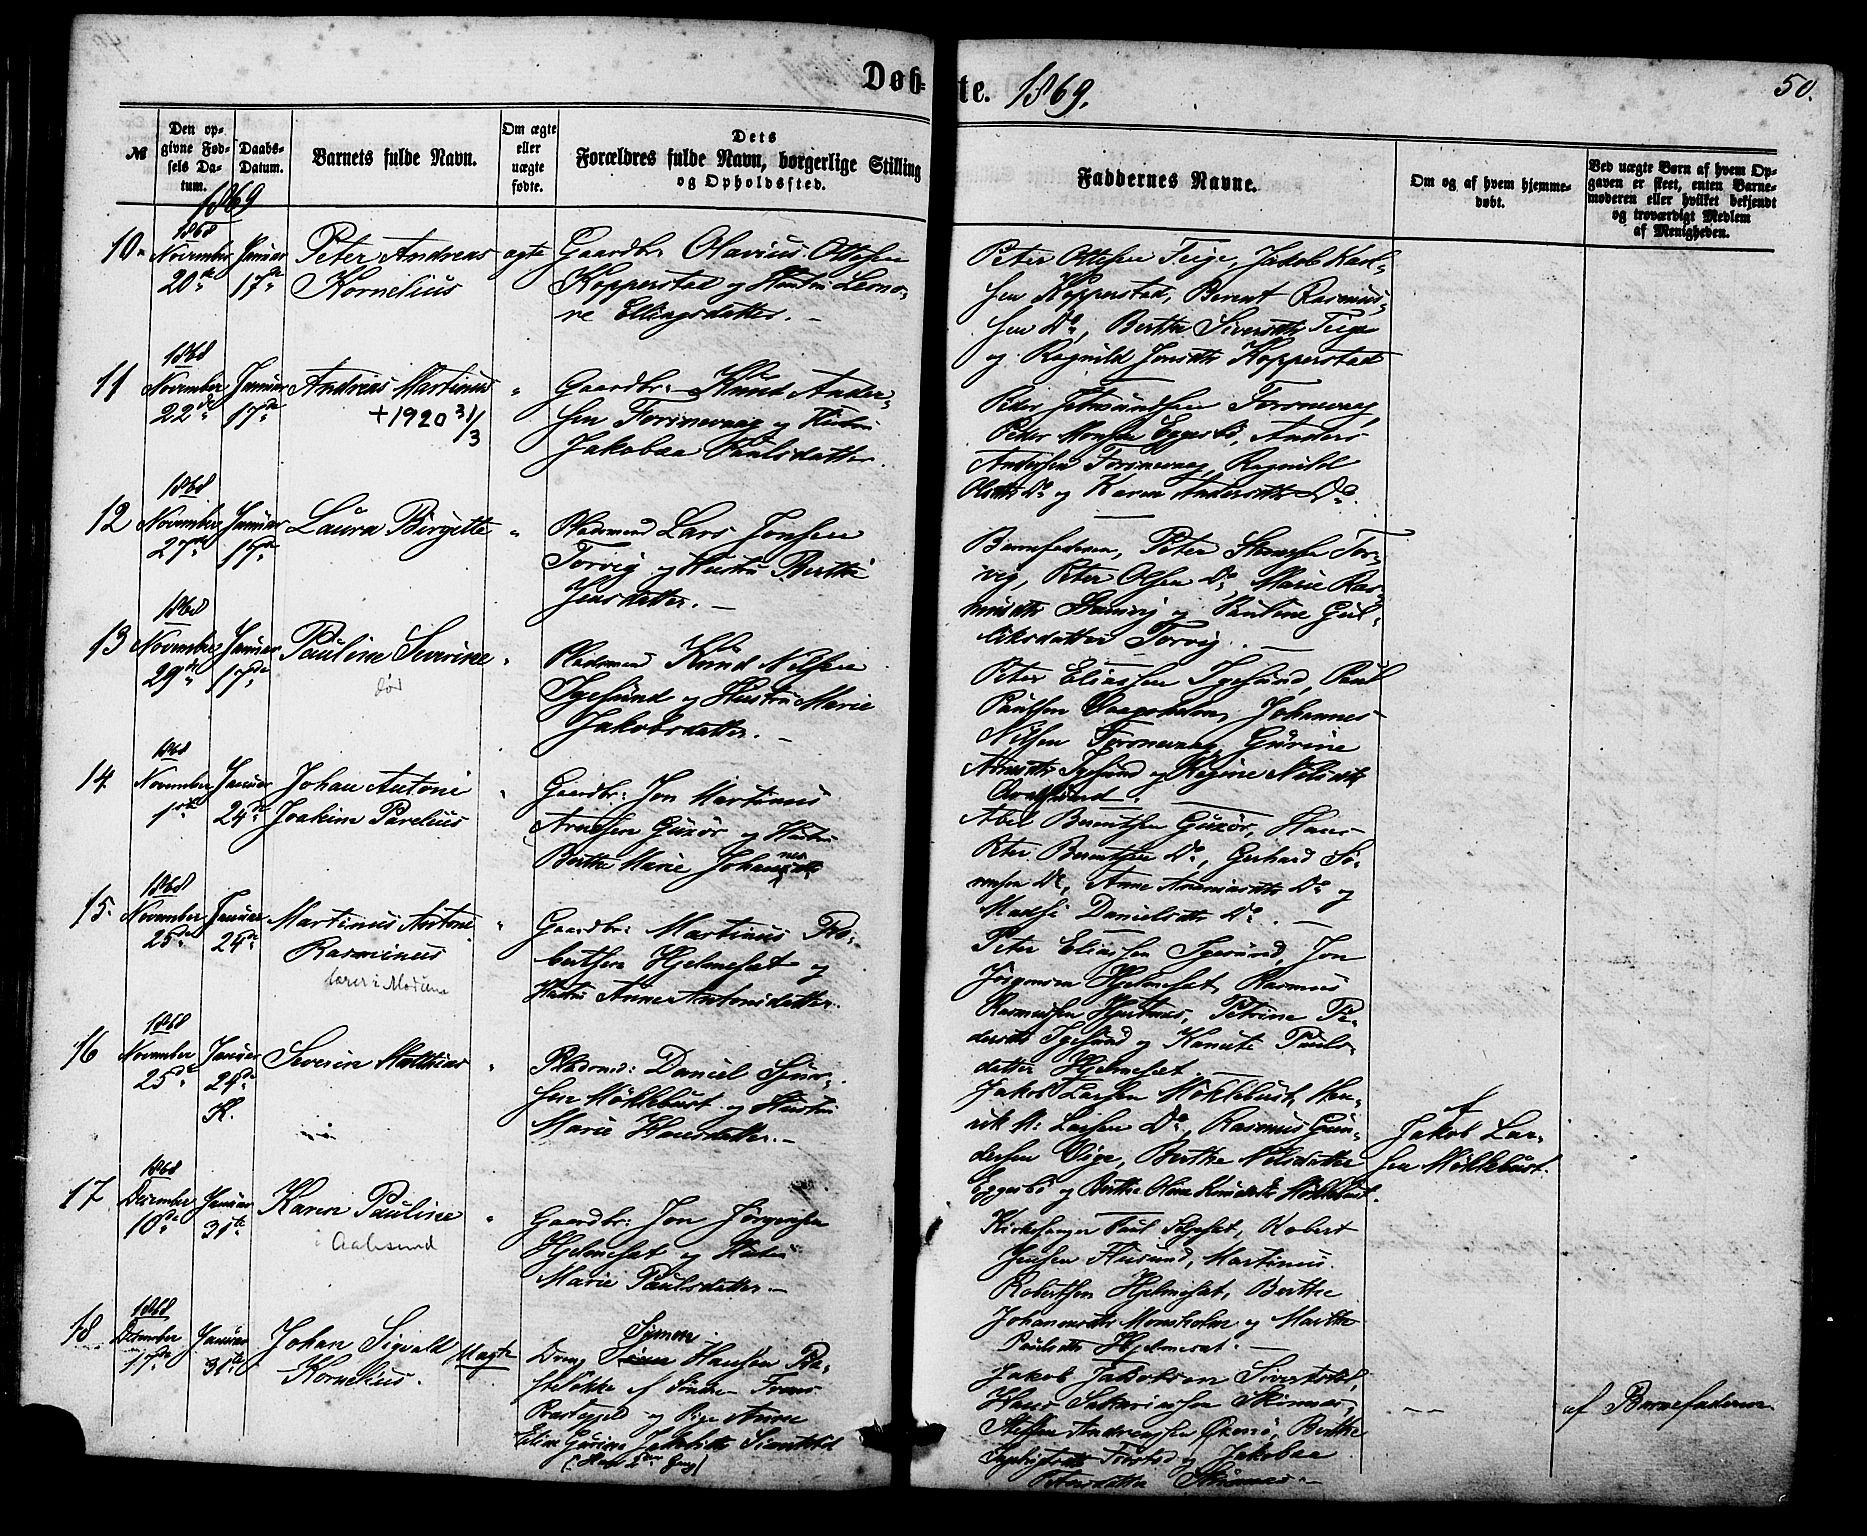 Døb-
te. 1869.
50.
№
Den op-
givne Fød-
sels Da-
tum.
Daabs-
Datum.
Barnets fulde Navn.
Om ægte
eller
uægte
fødte.
Dets
Forældres fulde Navn, borgerlige Stilling
og Opholdssted.
Faddernes Navne.
Om og af hvem hjemme-
døbt.
Ved uægte Børn af hvem Op-
gaven er skeet, enten Barne-
moderen eller hvilket bekjendt
og troværdigt Medlem
af Menigheden.
1869
10.
1868
November
20de
Januar
17de
Peter Andreas
Kornelius
ægte
Gaardbr: Olavius Ottesen
Kopperstad og Hustru Leno-
re Ellingsdatter. —
Peter Ottesen Teige, Jakob Karl-
sen Kopperstad, Berent Rasmus-
sen Do, Berthe Siversdtr Teige
og Ragnild Jonsdtr Kopperstad
11
1868
November
22de
Januar
17de
Andreas Martinus
+ 1920 3/3
"
Gaardbr: Knud Ander-
sen Torsnevaag og Hustru
Jakobaa Paulsdatter.
Peder Monsen Eggesbø, Anders
Andersen Torsnevaag, Ragnild
Olsdtr Do og Karen Andersdtr Do.
12
1868
November
27de
Januar
17de
Laura Birgitte
"
Pladsmand Lars Jonsen
Torvig og Hustru Berthe
Jensdatter. —
Barnefaderen, Peter
vig, Peter Olsen Do, Marie Ras-
musdtr og Pauline Gul-
liksdatter Torvig. —
13
1868
November
29de
Januar
17de
Pauline Severine
død
"
Pladsmand Knud Nilsen
Igesund og Hustru Marie
Jakobsdatter. —
Peter Eliassen Igesund, Paul
Paulsen Johannes
Nilsen Torsnevaag, Gurine
Igesund og Regine Nilsdtr
14
1868
November
1ste
Januar
24de
Johan Antoni
Joakim Parelius
"
Gaardbr: Jon Martinus
Arnesen Gurør og Hustru
Berthe Marie Johannesdtr
Abel Berentsen Gurør, Hans
Peter Berentsen Do, Gerhard Sø-
rensen Do, Anne Do og
Madsi Danielsdtr Do. —
15.
1868
November
25de
Januar
24de
Martinus Antone
Rasminus
"
Gaardbr: Martinus Ro-
bertsen Hjelmeset og
Hustru Anne Antonsdatter.
Peter Eliassen Igesund, Jon
Jørgensen Hjelmeset, Rasmus
Rasmussen Petrine Pe-
dersdtr Igesund og Kanute Pauls-
datter Hjelmeset. —
16
1868
November
25de
Januar
24de
K.
Severin Mathias
"
Pladsmd: Daniel Sjur-
sen Møklebust og Hustru
Marie Hansdatter. —
Jakob Larsen Møklebust, Hen-
rik M: Larsen Do, Rasmus Gun-
dersen Vige, Berthe Nilsdatter
Eggesbø og Berthe Olave Knudsdtr Møklebust.
af
Jakob Lar-
sen Møklebust.
17
1868
December
10de
Januar
31te
Karen Pauline
i Aalesund
"
Gaardbr: Jon Jørgensen
Hjelmeset og Hustru
Marie Paulsdatter —
Kirkesanger Paul Robert
Jensen Flusund, Martinus
Robertsen Hjelmeset, Berthe
Johannesdtr Monsholm og Marthe
Paulsdtr Hjelmeset. —
18
1868
December
17de
Januar
31te
Johan Sigvald
Kornelius.
Uægte
Symon
Dreng Hansen Ra-
steløkke af Søndre Frons
Præstegjeld og Pige Anne
Eline Gurine Jakobsdtr Sivertstøl
(: Hans 2den Gang)
Jakob Jakobsen Sivertstøl,
Hans Sakariassen Skinnes,
Steffen Andreassen Berthe
og Jakobaa
Petersdatter Skinnes. —
— —
af Barnefaderen